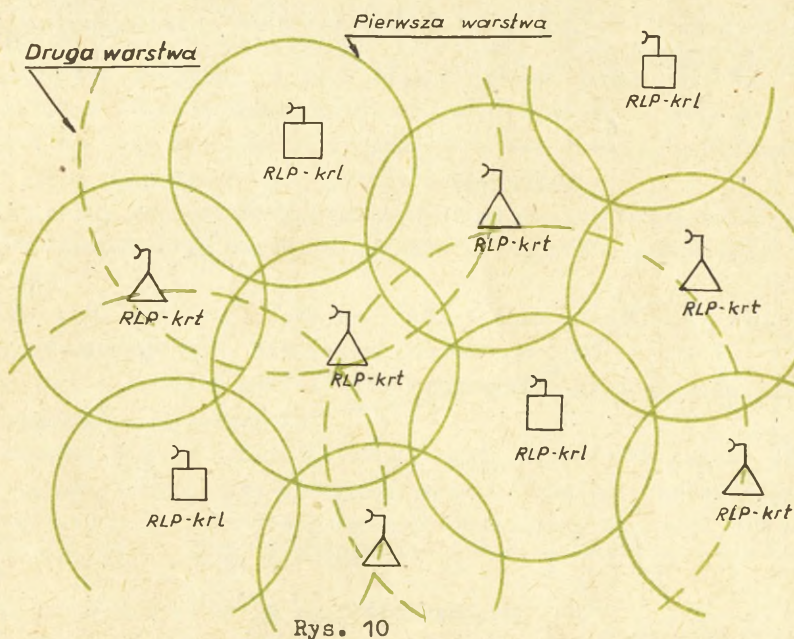 Pierwsza warstwa
Druga warstwa
RLP-krl
RLP-krl
RLP-krt
RLP-krt
RLP-krt
RLP-krt
RLP-krl
RLP-krl
RLP-krt
Rys. 10